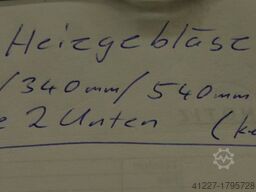 Heizgebläse
/340mm/540mm
e 2 Unten (ke
41227-1795728